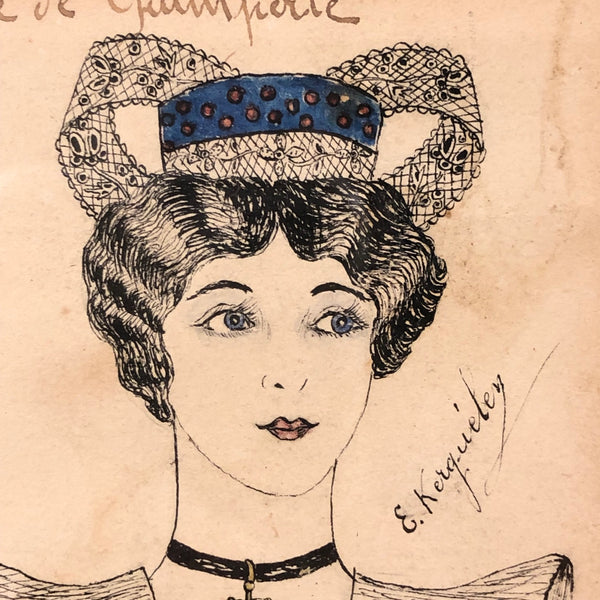 de Quimperlé
E. Kerguélen